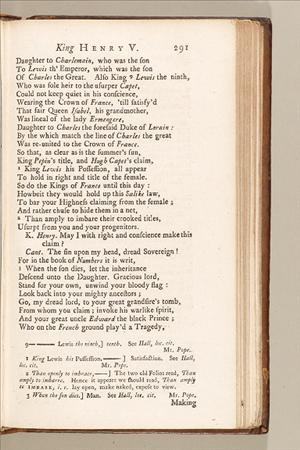 King HENRY V. 291
Daughter to Charlemain, who was the son
To Lewis th' Emperor, which was the son
Of Charles the Great. Also King 9 Lewis the ninth,
Who was sole heir to the usurper Capet,
Could not keep quiet in his conscience,
Wearing the Crown of France, 'till satisfy'd
That fair Queen Isabel, his grandmother,
Was lineal of the lady Ermengere,
Daughter to Charles the foresaid Duke of Lorain:
By the which match the line of Charles the great
Was re-united to the Crown of France.
So that, as clear as is the summer's sun,
King Pepin's title, and Hugh Capet's claim,
1 King Lewis his Possession, all appear
To hold in right and title of the female.
So do the Kings of France until this day:
Howbeit they would hold up this Salike law,
To bar your Highness claiming from the female;
And rather chuse to hide them in a net,
2 Than amply to imbare their crooked titles,
Usurpt from you and your progenitors.
K. Henry. May I with right and conscience make this
claim?
Cant. The sin upon my head, dread Sovereign!
For in the book of Numbers it is writ,
3 When the son dies, let the inheritance
Descend unto the Daughter. Gracious lord,
Stand for your own, unwind your bloody flag:
Look back into your mighty ancestors;
Go, my dread lord, to your great grandsire's tomb,
From whom you claim; invoke his warlike spirit,
And your great uncle Edward the black Prince;
Who on the French ground play'd a Tragedy,
9 —— Lewis the ninth,] tenth. See Hall, loc. cit.
Mr. Pope.
1 King Lewis his Possession,——] Satisfaction. See Hall,
loc. cit. Mr. Pope.
2 Than openly to imbrace,——] The two old Folios read, Than
amply to imbarre. Hence it appears we should read, Than amply
to IMBARE, i. e. lay open, make naked, expose to view.
3 When the son dies,] Man. See Hall, loc. cit. Mr. Pope.
Making